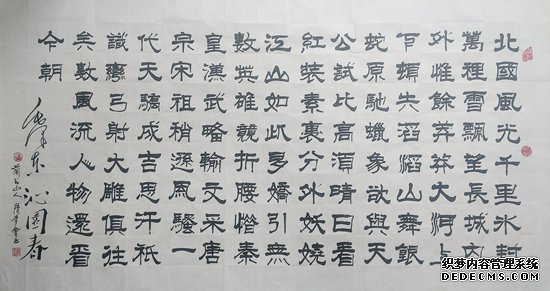 北國風光千里冰封
萬裡雪飄望長城內
外惟餘莽莽大河上
下頓失滔滔山舞銀
蛇原馳蠟象欲與天
公試比高須晴日看
紅裝素裹分外妖嬈
江山如此多嬌引無
數英雄競折腰惜秦
皇漢武略輸文采唐
宗宋祖稍遜風騷一
代天驕成吉思汗祇
識彎弓射大雕俱往
矣數風流人物還看
今朝
毛澤東沁園春
织梦内容管理系统
DEDECMS.COM